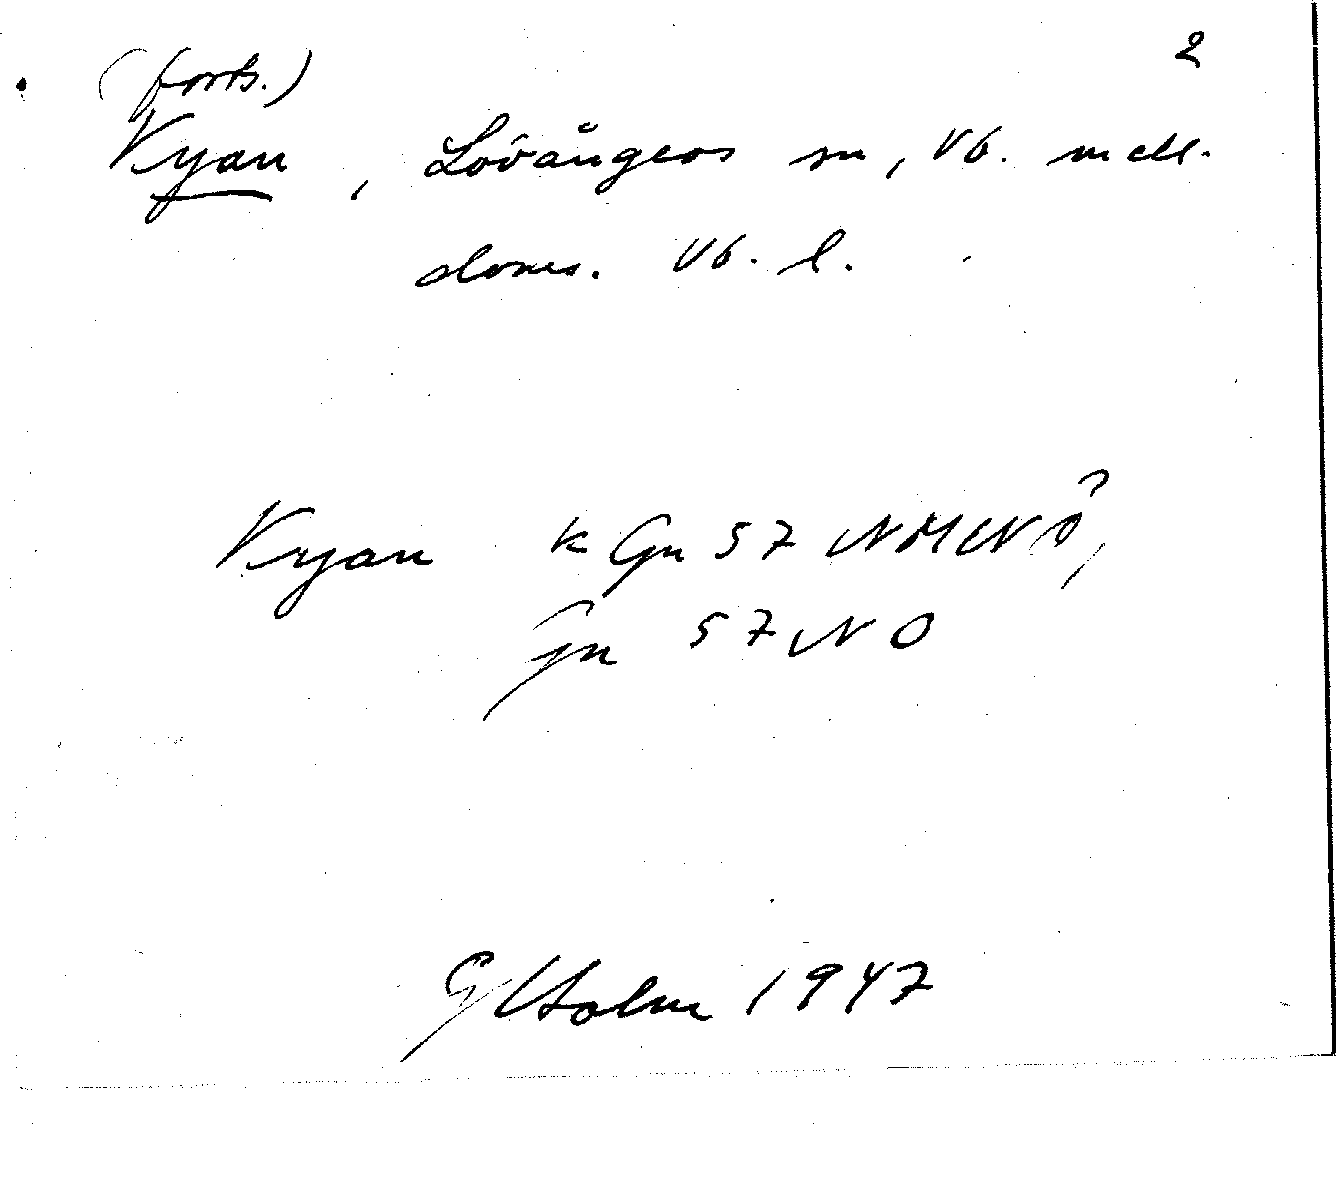 (forts.) 2
Vyan, Lövångers sn, Vb. mell.
doms. Vb. l.
Vyan k Gn 57 NMNÖ,
Gn 57 NO
G Holm 1947